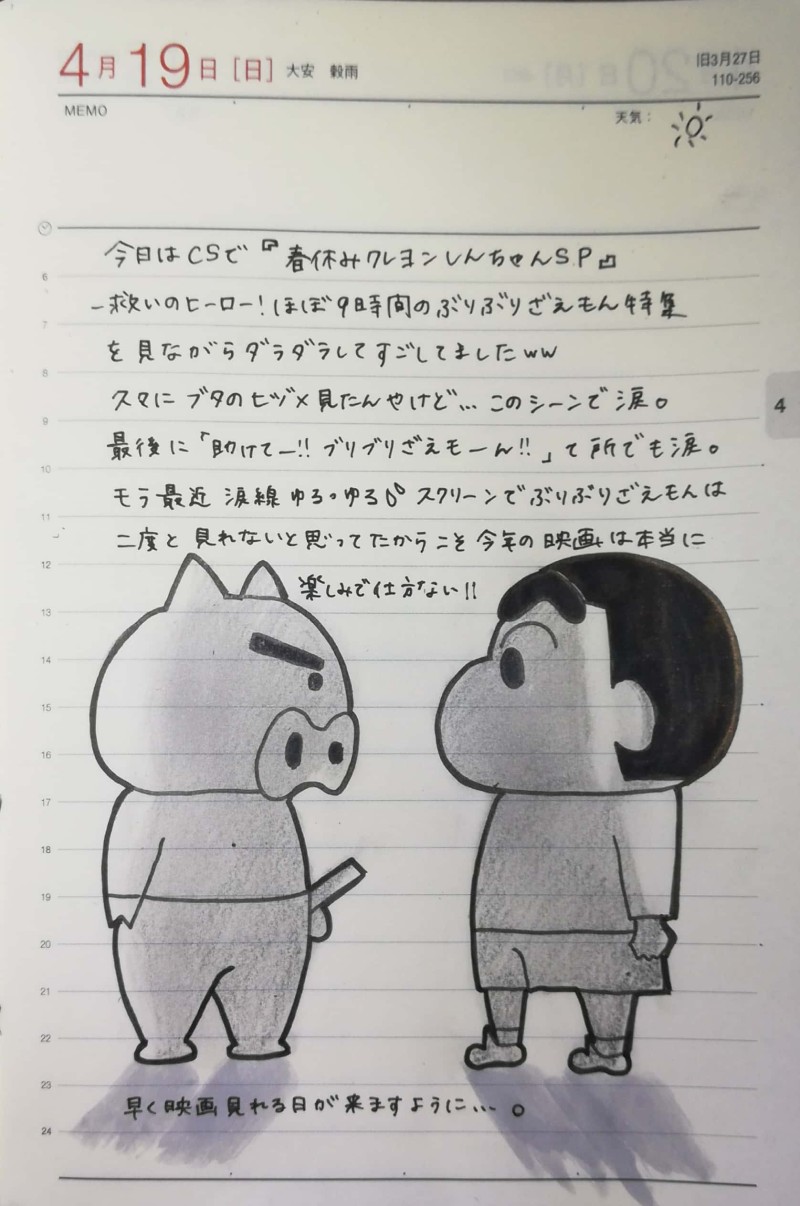 4月19日[日] 大安 穀雨
旧3月27日
110-256
MEMO
天気：
今日はCSで『春休みクレヨンしんちゃんS.P』
―救いのヒーロー！ほぼ9時間のぶりぶりざえもん特集
を見ながらダラダラしてすごしてましたww
久々にブタのヒヅメ見たんやけど…このシーンで涙。
最後に「助けてー!!ブリブリざえモーん!!」て所でも涙。
モウ最近涙線ゆる。ゆる スクリーンでぶりぶりざえもんは
二度と見れないと思ってたからこそ今年の映画は本当に
楽しみで仕方ない!!
早く映画見れる日が来ますように…。
4
6
7
8
9
10
11
12
13
14
15
16
17
18
19
20
21
22
23
24